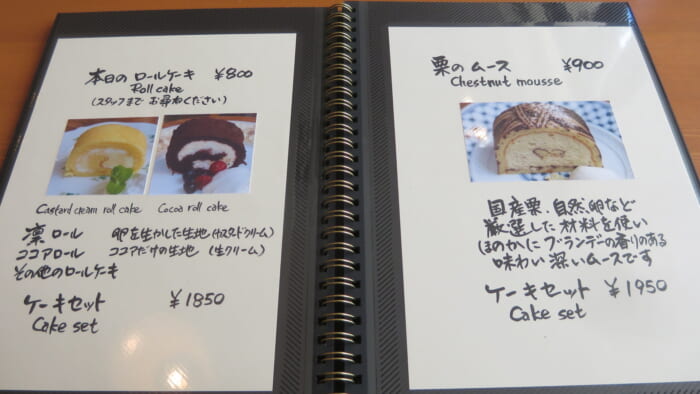 本日の ロールケーキ ¥800
Roll cake
(スタッフまで お尋ねください)
Custard cream roll cake
Cocoa roll cake
凛 ロール 卵を生かした生地 (カスタードクリーム)
ココアロール ココアだけの生地 (生クリーム)
その他のロールケーキ
ケーキセット ¥1850
Cake set
栗の ムース ¥900
Chestnut mousse
国産栗、自然卵など
厳選した材料を使い
ほのかに ブランデーの香りのある
味わい 深いムースです
ケーキセット ¥1950
Cake set